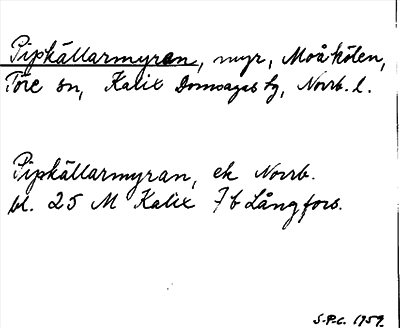 Pipkällarmyran, myr, Moåkölen,
Töre sn, Kalix Domsagas tg, Norrb. l.
Pipkällarmyran, ek Norrb.
bl. 25 M Kalix 7b Långfors.
S.P.C. 1959.